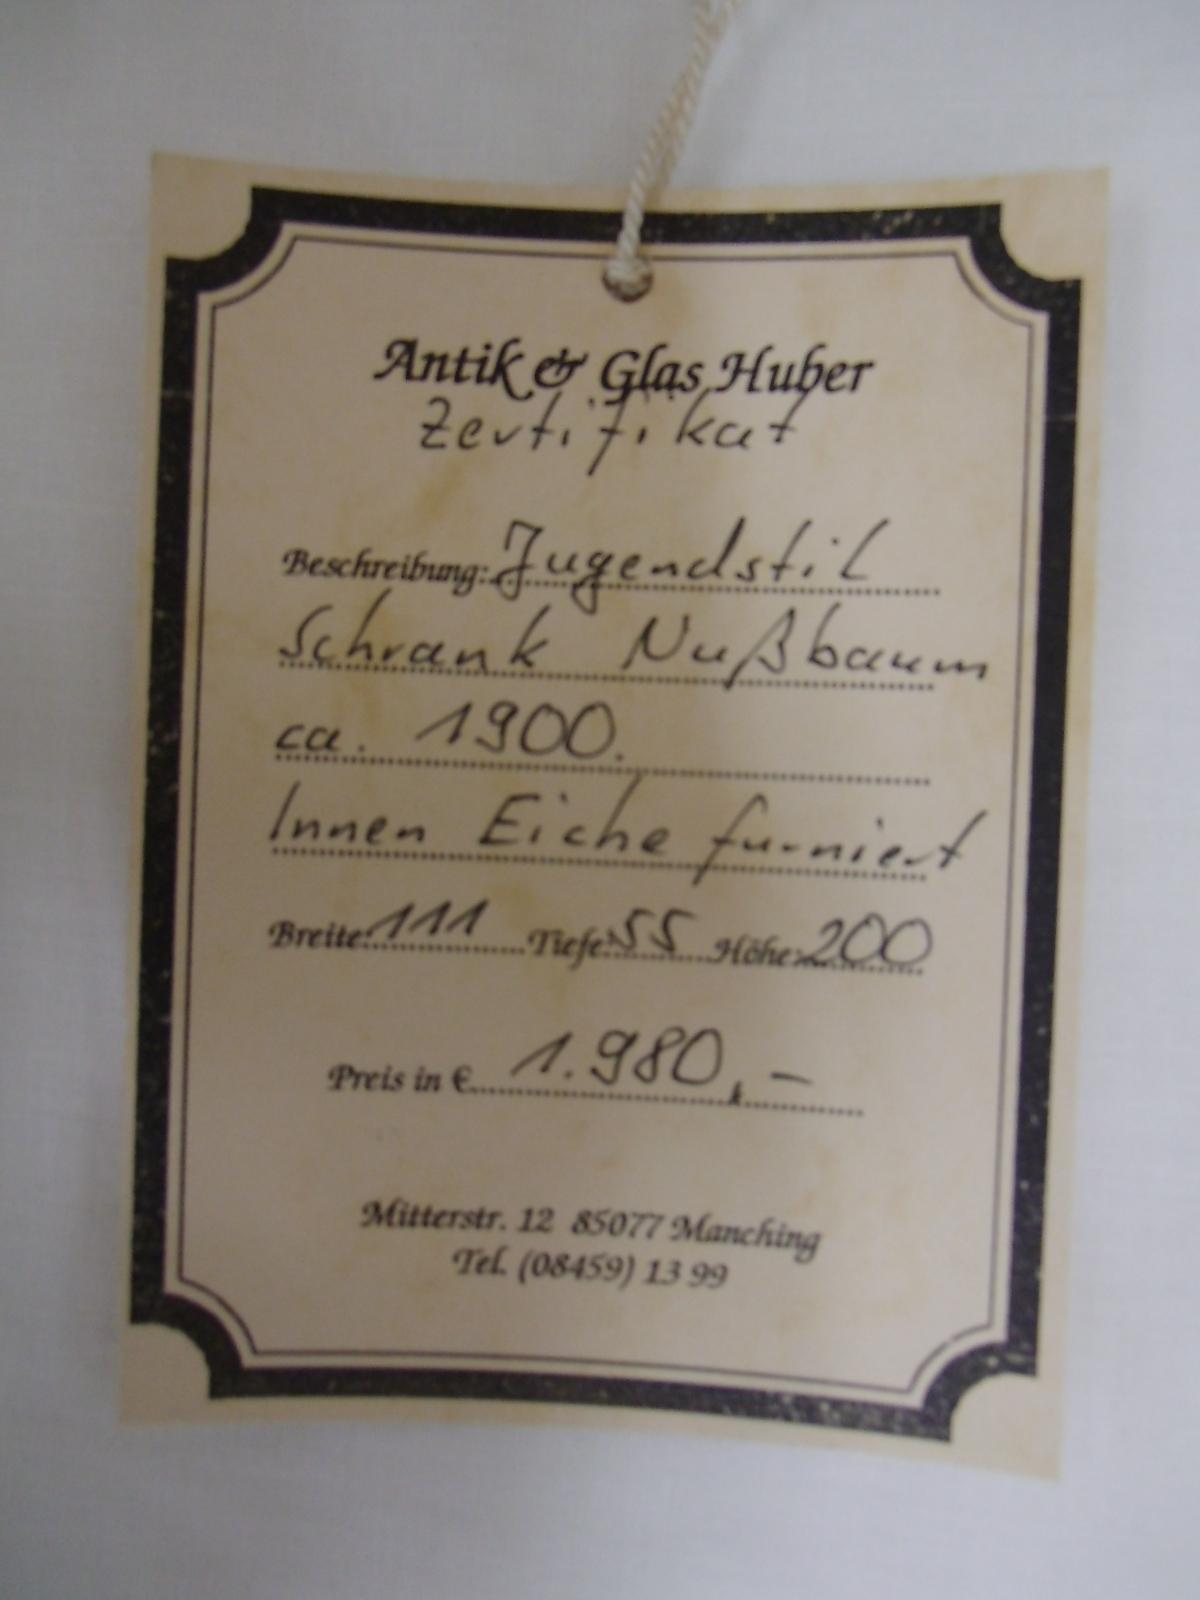 Antik & Glas Huber
Zertifikat
Beschreibung: Jugendstil
Schrank Nußbaum
ca. 1900.
Innen Eiche furniert
Breite 111 Tiefe 55 Höhe: 200
Preis in € 1.980,-
Mitterstr. 12 85077 Manching
Tel. (08459) 13 99